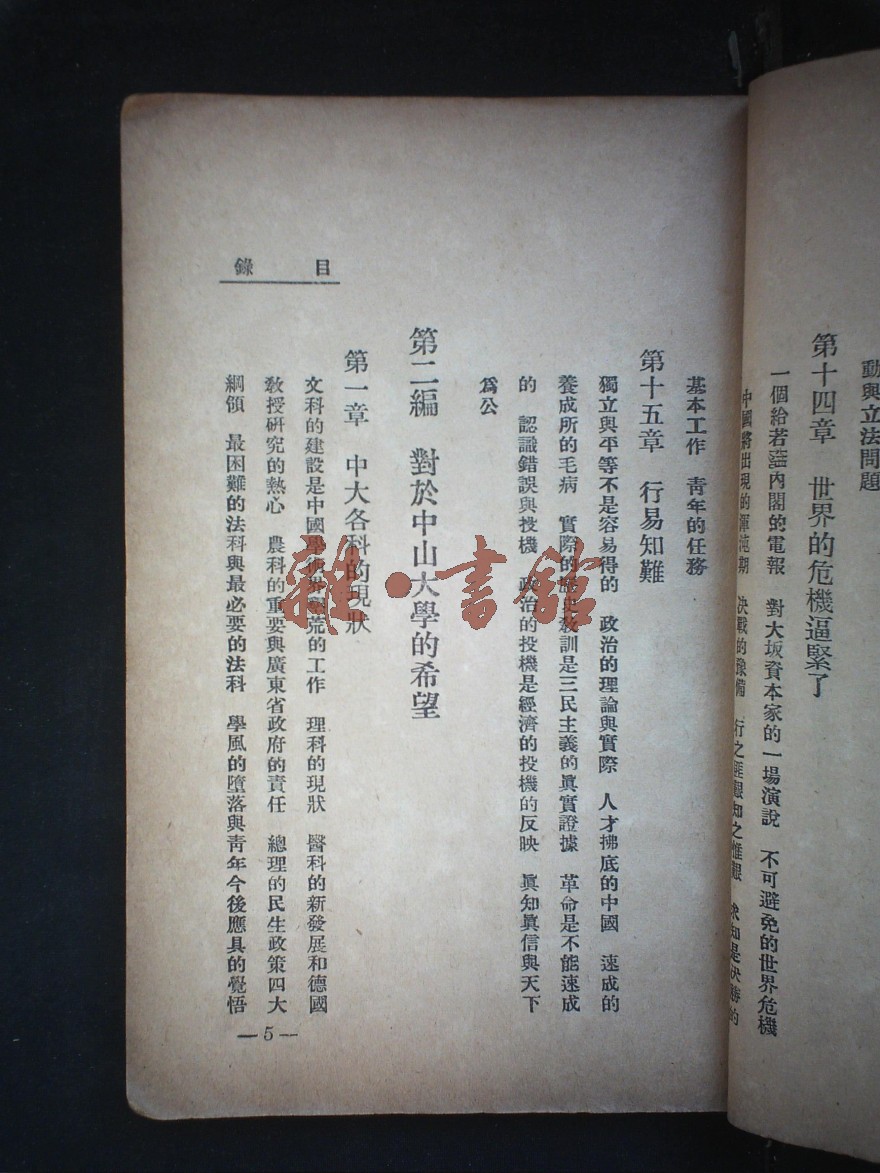 動與立法問題
第十四章　世界的危機逼緊了
一個給若 內閣的電報　對大坂資本家的一場演說　不可避免的世界危機
中國將出現的渾沌期　決戰的豫備　行之匪艱知之惟艱　求知是決勝的
基本工作　青年的任務
第十五章　行易知難
獨立與平等不是容易得的　政治的理論與實際　人才拂底的中國　速成的
養成所的毛病　實際的歷史教訓是三民主義的眞實證據　革命是不能速成
的　認識錯誤與投機　政治的投機是經濟的投機的反映　眞知眞信與天下
爲公
第二編　對於中山大學的希望
第一章　中大各科的現狀
文科的建設是中國學術界墾荒的工作　理科的現狀　醫科的新發展和德國
敎授硏究的熱心　農科的重要與廣東省政府的責任　總理的民生政策四大
綱領　最困難的法科與最必要的法科　學風的墮落與靑年今後應具的覺悟
目錄
—5—
雜·書館